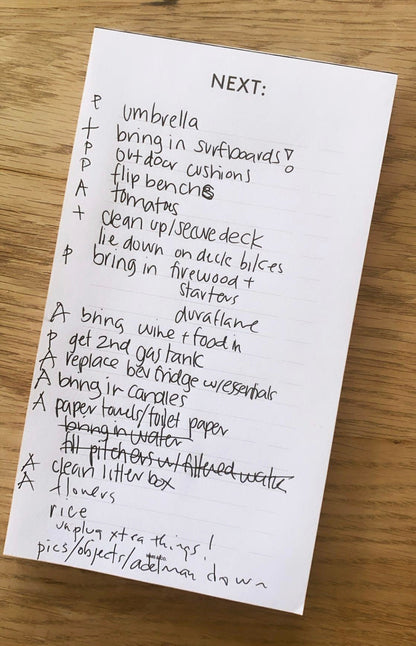 NEXT:
P umbrella
t bring in surfboards!
P outdoor cushions
P flip benches
A tomatoes
t clean up/secure deck
lie down on deck bikes
P bring in firewood +
starters
duraflame
A bring wine + food in
P get 2nd gas tank
A replace bev fridge w/essentials
A bring in candles
A paper towels/toilet paper
bring in water
fill pitchers w/ filtered water
A clean litter box
A flowers
rice
unplug xtra things!
pics/objects/adelman down